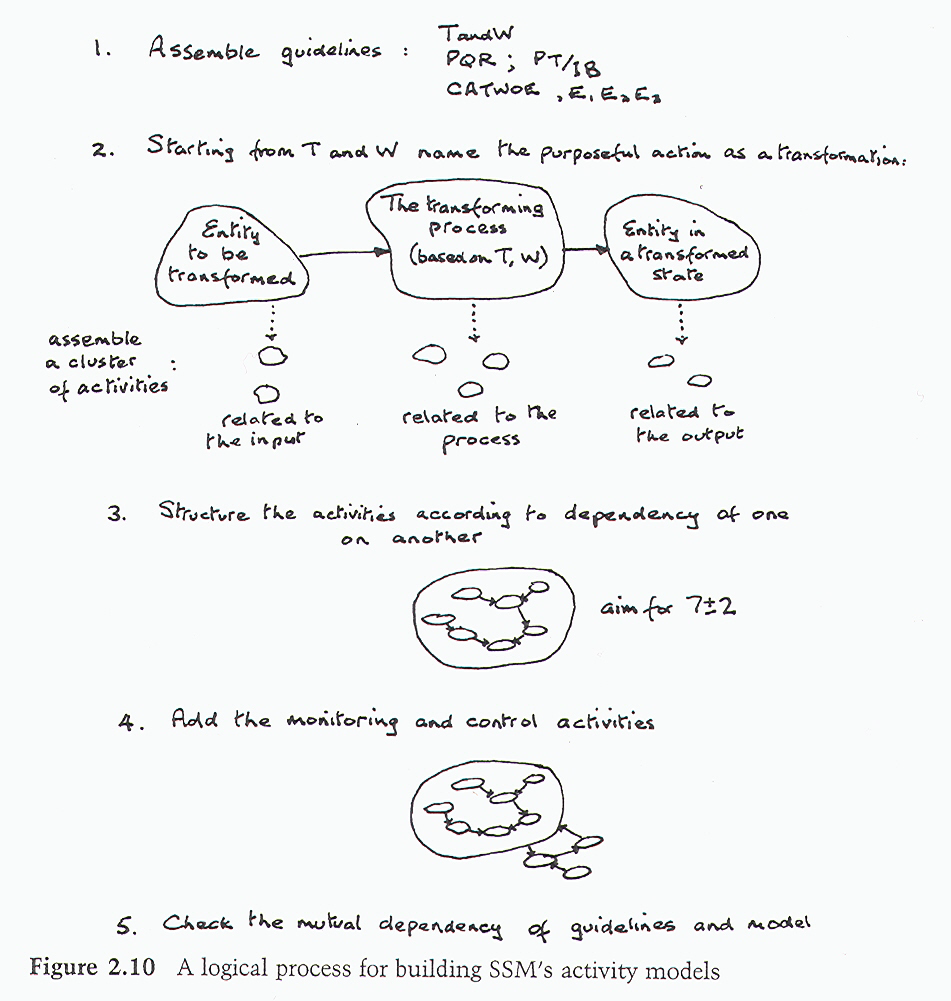 1. Assemble guidelines :
T and W
PQR ; PT/IB
CATWOE , E₁ E₂ E₃
2. Starting from T and W name the purposeful action as a transformation:
Entity
to be
transformed
The transforming
process
(based on T, W)
Entity in
a transformed
state
assemble
a cluster :
of activities
related to
the input
related to the
process
related to
the output
3. Structure the activities according to dependency of one
on another
aim for 7±2
4. Add the monitoring and control activities
5. Check the mutual dependency of guidelines and model
Figure 2.10 A logical process for building SSM's activity models